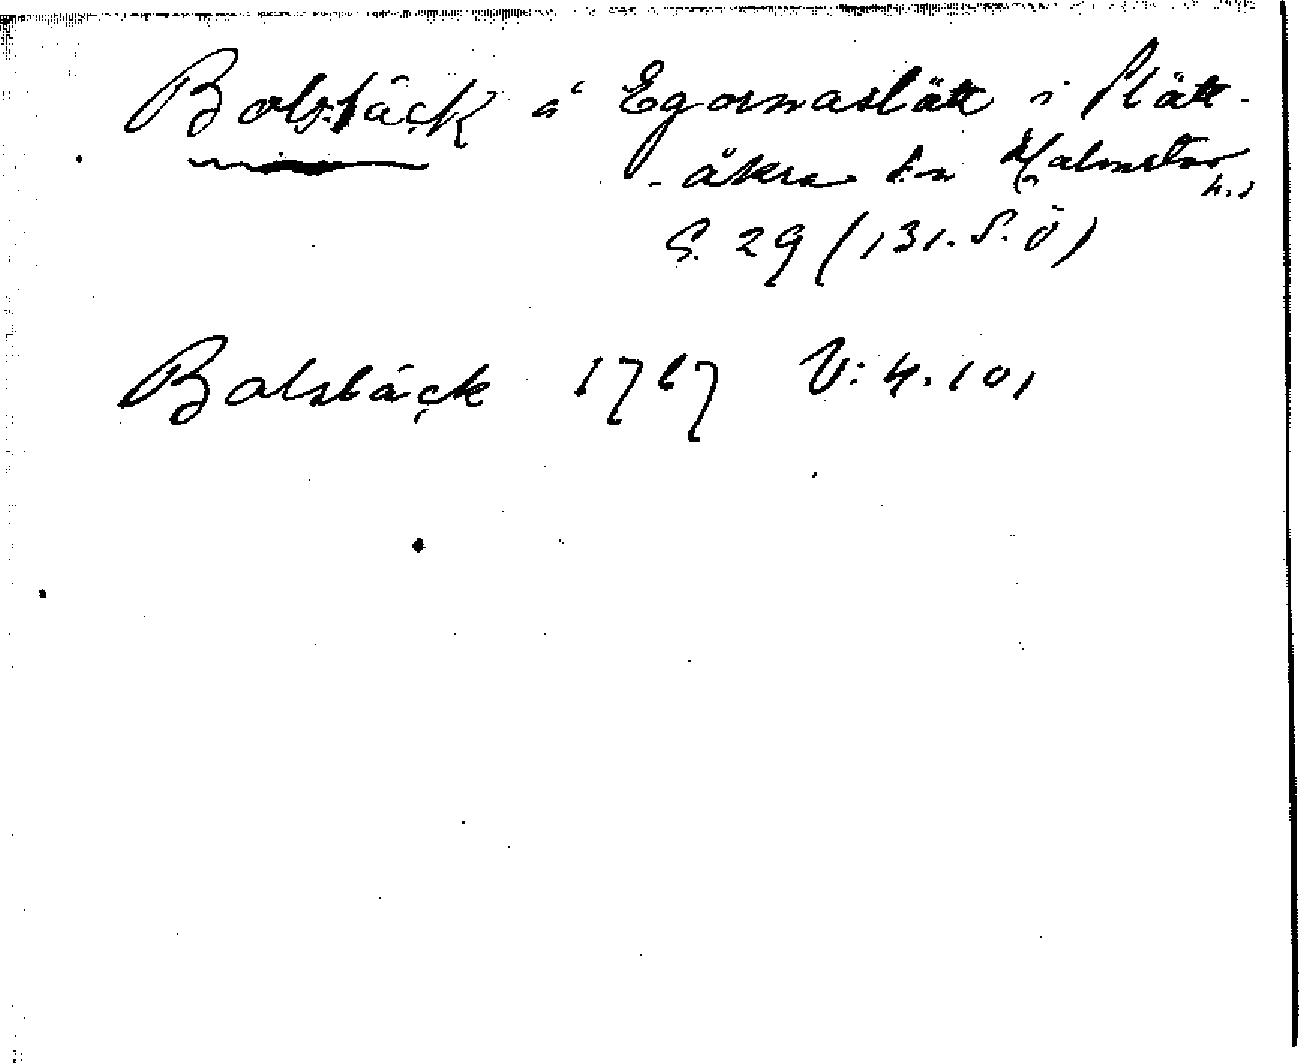 Bolsbäck å Egornaslätt i Slätt-
-åkra sn Halmstad
h.d
S. 29 (131. S. Ö)
Bolsbäck 1767 V: 4. 101